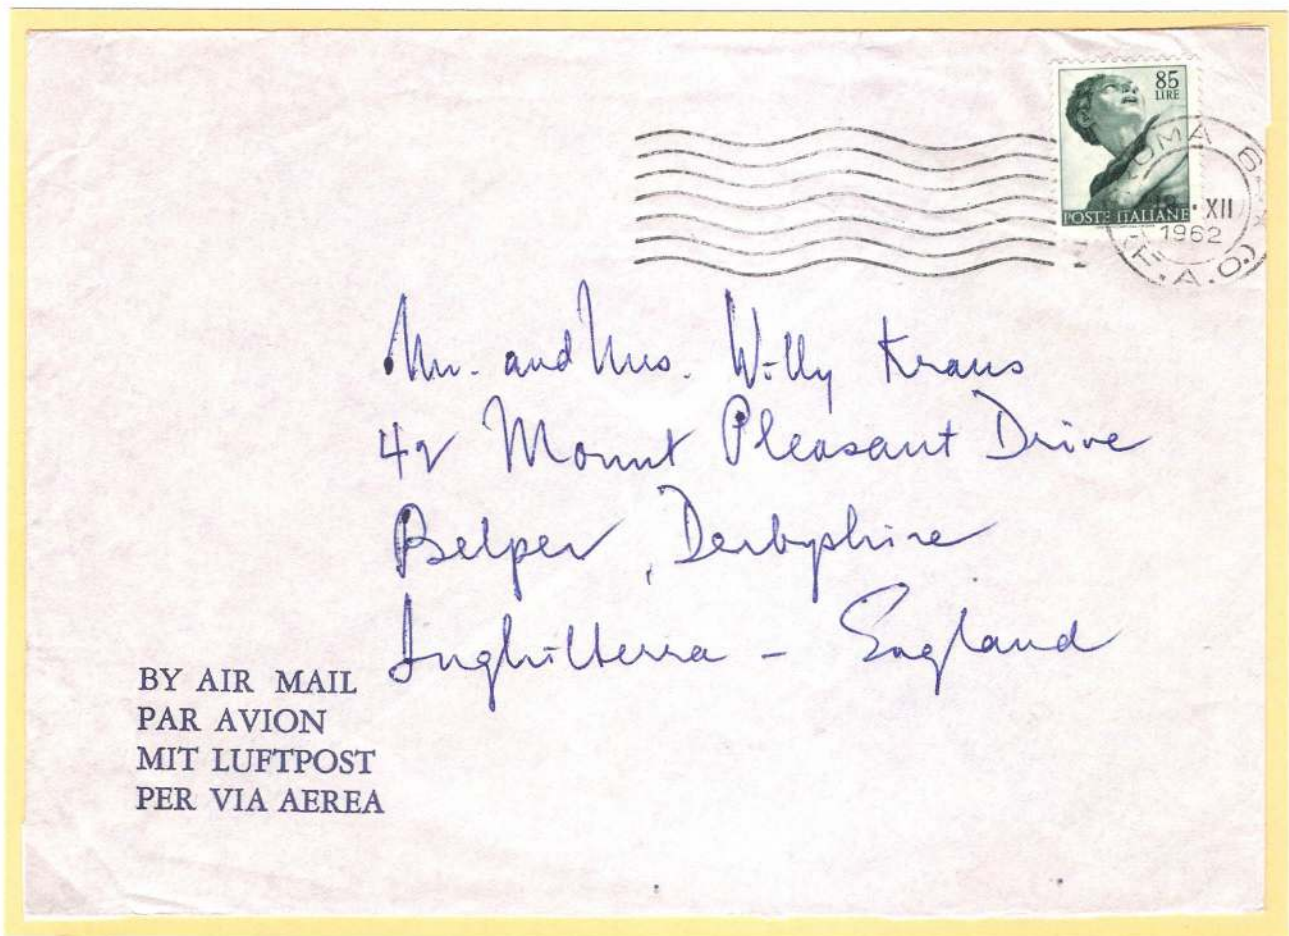 85
LIRE
POSTE ITALIANE
ROMA 6
XII
1962
(F.A.O.)
Mr. and Mrs. Willy Kraus
Mount Pleasant Drive
Belper, Derbyshire
Inghilterra - England
BY AIR MAIL
PAR AVION
MIT LUFTPOST
PER VIA AEREA